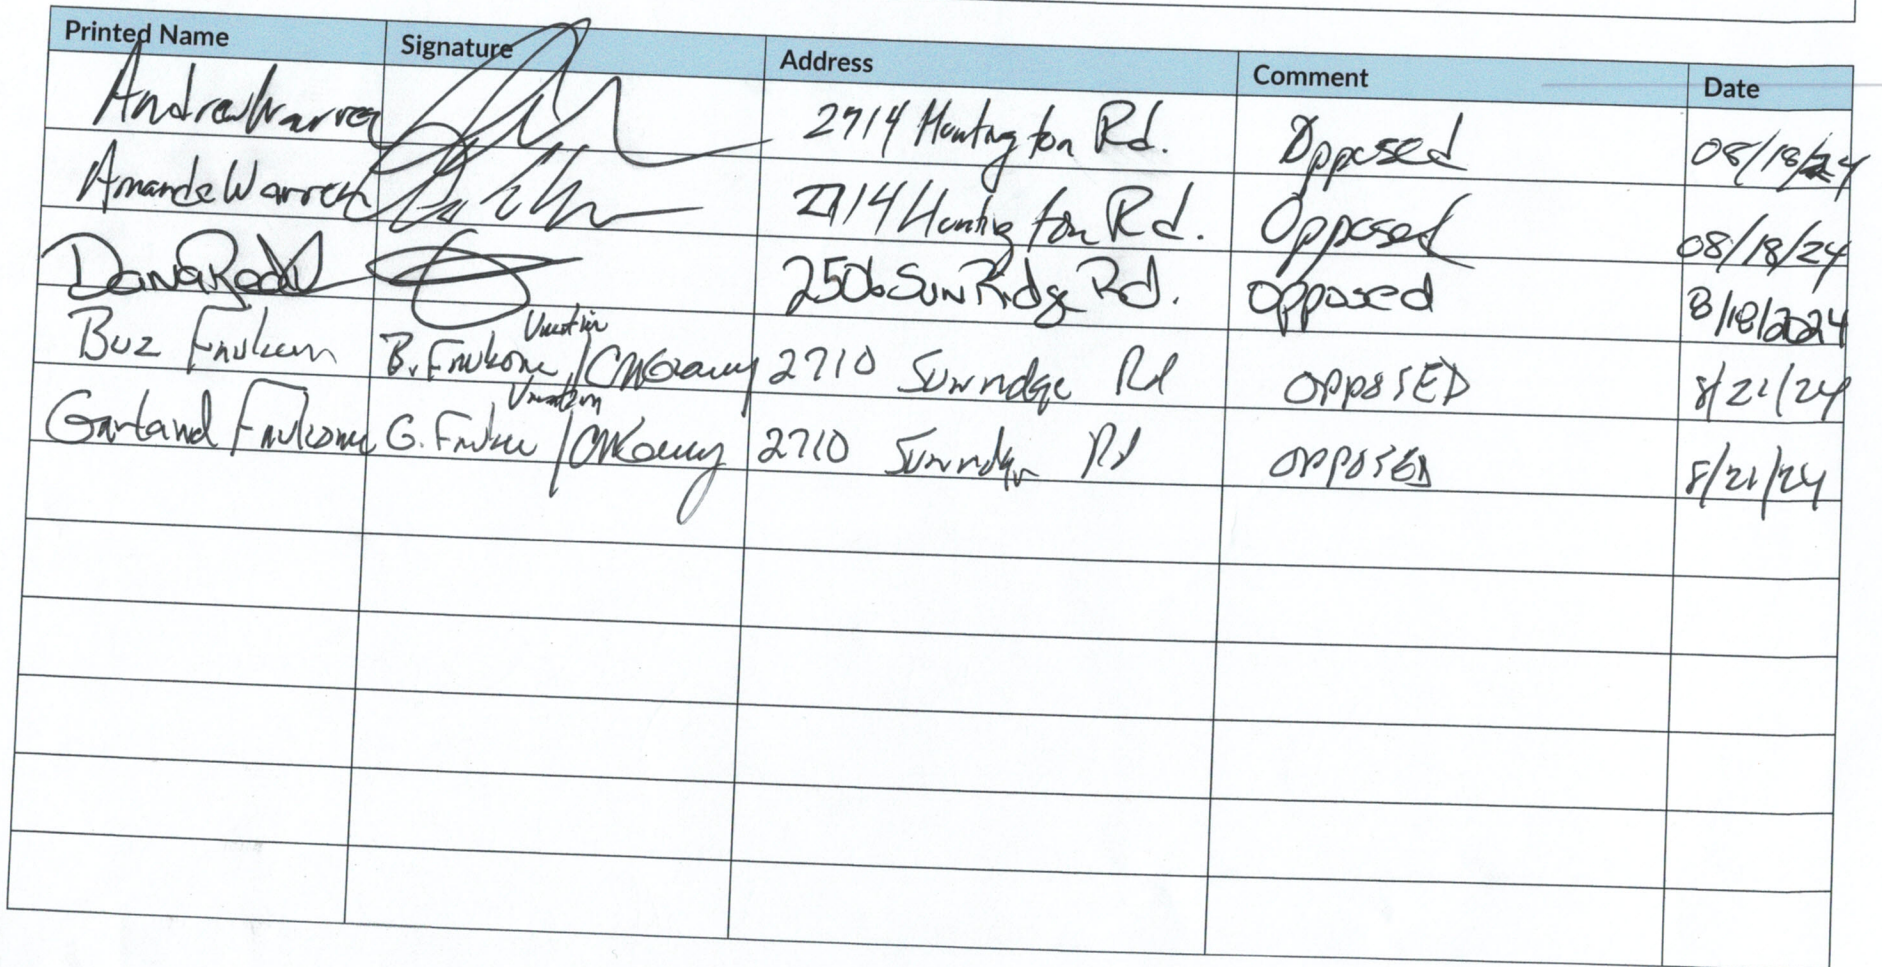 Printed Name Signature Address Comment Date
Andrew Warren 2714 Huntington Rd. Opposed 08/18/24
Amanda Warren 2714 Huntington Rd. Opposed 08/18/24
Dana 2506 Sun Ridge Rd. Opposed 8/18/2024
Vacation
Buz 2710 Sunridge Rd OPPOSED 8/21/24
Vacation
Garland G. 2710 Sunridge Rd OPPOSED 8/21/24